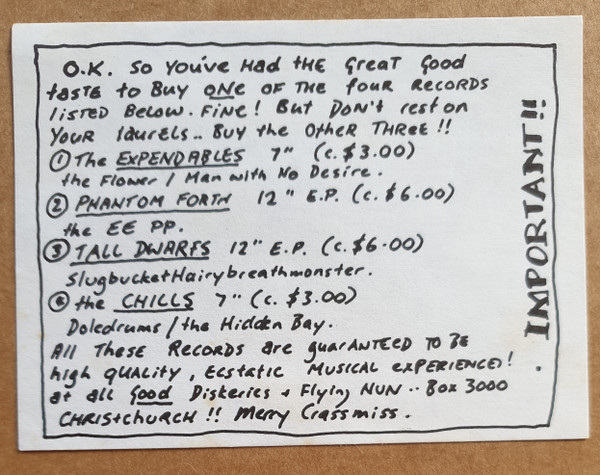 O.K. So You've Had the Great Good
taste to Buy one of the four Records
listed Below. Fine! But Don't rest on
Your laurels.. Buy the Other Three!!
① The EXPENDABLES 7" (c. $3.00)
the Flower / Man with No Desire.
② PHANTOM FORTH 12" E.P. (c. $6.00)
the EE PP.
③ TALL DWARFS 12" E.P. (c. $6.00)
SlugbucketHairybreathmonster.
④ the CHILLS 7" (c. $3.00)
Doledrums / the Hidden Bay.
All These Records are guaranteed to Be
high Quality, Ecstatic Musical experiences!
at all Good Diskeries + Flying NUN .. Box 3000
CHRISTCHURCH!! Merry Crassmiss.
IMPORTANT!!